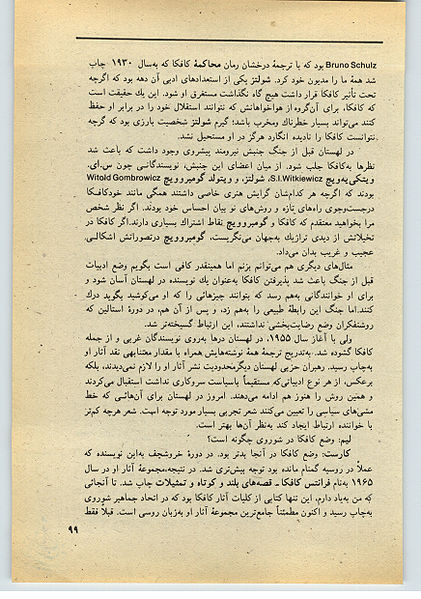 Bruno Schulz بود که با ترجمهٔ درخشان رمان محاکمهٔ کافکا که به‌سال ۱۹۳۰ چاپ
شد همهٔ ما را مدیون خود کرد. شولتز یکی از استعدادهای ادبی آن دهه بود که اگرچه
تحت تأثیر کافکا قرار داشت هیچ گاه نگذاشت مستغرق او شود. این یك حقیقت است
که کافکا، برای آن‌گروه از هواخواهانش که نتوانند استقلال خود را در برابر او حفظ
کنند می‌تواند بسیار خطرناك ومخرب باشد؛ گیرم شولتز شخصیت بارزی بود که گرچه
نتوانست کافکا را نادیده انگارد هرگز در او مستحیل نشد.
در لهستان قبل از جنگ جنبش نیرومند پیشروی وجود داشت که باعث شد
نظرها به‌کافکا جلب شود. از میان اعضای این جنبش، نویسندگانی چون س.ای.
ویتکی‌یه‌ویچ S.I.Witkiewicz، شولتز، و ویتولد گومبروویچ Witold Gombrowicz
بودند که اگرچه هر کدام‌شان گرایش هنری خاصی داشتند همگی مانند خودکافکا
درجست‌وجوی راه‌های تازه و روش‌های نو بیان احساس خود بودند. اگر نظر شخص
مرا بخواهید معتقدم که کافکا و گومبروویچ نقاط اشتراك بسیاری دارند.اگر کافکا در
تخیلاتش از دیدی تراژیك به‌جهان می‌نگریست، گومبروویچ درتصوراتش اشکالی
عجیب و غریب بدان می‌داد.
مثال‌های دیگری هم می‌توانم بزنم اما همینقدر کافی است بگویم وضع ادبیات
قبل از جنگ باعث شد پذیرفتن کافکا به‌عنوان یك نویسنده در لهستان آسان شود و
برای او خوانندگانی به‌هم رسد که بتوانند چیزهائی را که او می‌کوشید بگوید درك
کنند.اما جنگ این رابطهٔ طبیعی را به‌هم زد، و پس از آن هم، در دورهٔ استالین که
روشنفکران وضع رضایت‌بخشی نداشتند، این ارتباط گسیخته‌تر شد.
ولی با آغاز سال ۱۹۵۵، در لهستان درها به‌روی نویسندگان غربی و از جمله
کافکا گشوده شد. به‌تدریج ترجمهٔ همهٔ نوشته‌هایش همراه با مقدار معتنابهی نقد آثار او
به‌چاپ رسید. رهبران حزبی لهستان دیگرمحدودیت نشر آثار او را لازم نمی‌دیدند، بلکه
برعکس، از هر نوع ادبیاتی‌که مستقیماً باسیاست سروکاری نداشت استقبال می‌کردند
و همین روش را هنوز هم ادامه می‌دهند. امروز در لهستان برای آن‌هائی که خط
مشی‌های سیاسی را تعیین می‌کنند شعر تجربی بسیار مورد توجه است. شعر هرچه کم‌تر
با خواننده ارتباط ایجاد کند به‌نظر آن‌ها بهتر است.
لیم: وضع کافکا در شوروی چگونه است؟
کارست: وضع کافکا در آنجا بدتر بود. در دورهٔ خروشچف به‌این نویسنده که
عملاً در روسیه گمنام مانده بود توجه بیش‌تری شد. در نتیجه،مجموعهٔ آثار او در سال
۱۹۶۵ به‌نام فرانتس کافکا ـ قصه‌های بلند و کوتاه و تمثیلات چاپ شد. تا آنجائی
که من به‌یاد دارم، این تنها کتابی از کلیات آثار کافکا بود که در اتحاد جماهیر شوروی
به‌چاپ رسید و اکنون مطمئناً جامع‌ترین مجموعهٔ آثار او به‌زبان روسی است. قبلاً فقط
۹۹